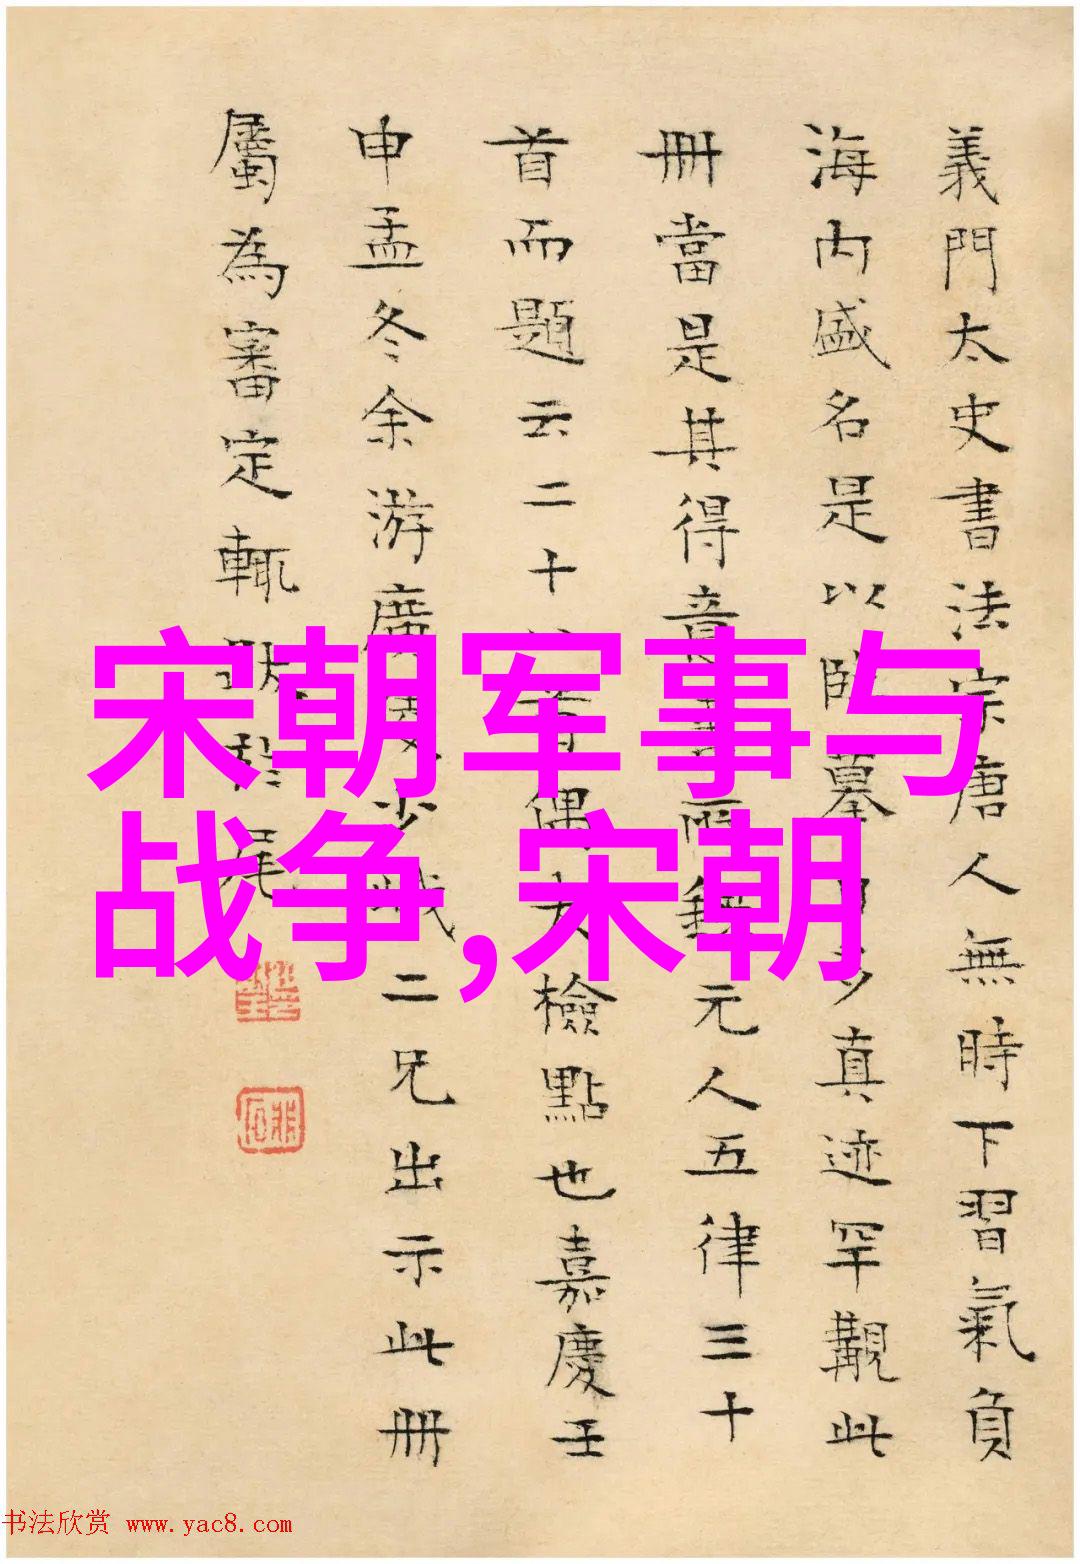 義門太史書法宗唐人無時下習氣負
海内盛名是以臨摹日多真迹罕覯此
冊當是其得意書兩錢元人五律三十
首而題云二十 首偶失檢點也嘉慶壬
申孟冬余游廣 少 二兄出示此冊
屬為審定輒 於尾
宋朝军事与
战争,宋朝
书法欣赏 www.yac8.com